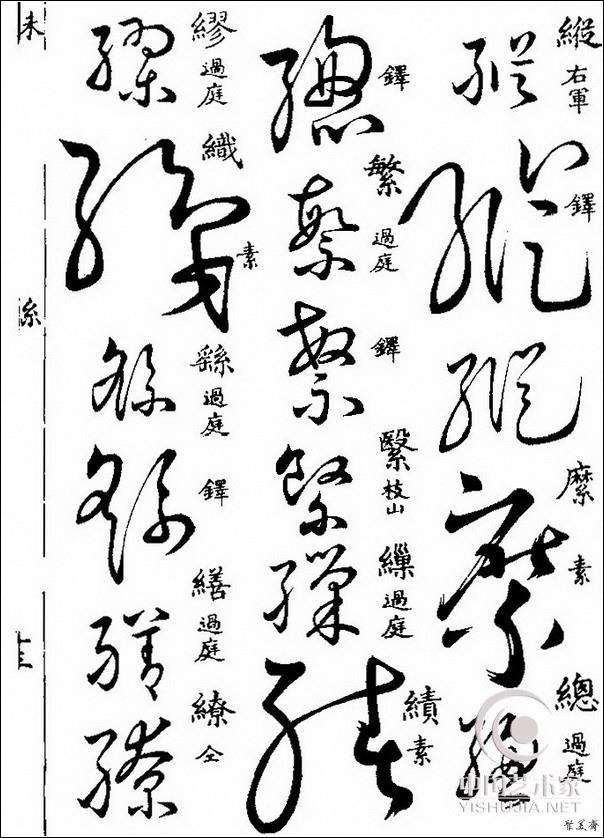 縱 右軍
鐸
縻 素
總 過庭
鐸
繁 過庭
鐸
繄 枝山
繅 過庭
績 素
繆 過庭
織 素
繇 過庭
鐸
繕 過庭
繚 仝
未
糸
中国艺术家
YISHUJIA.NET